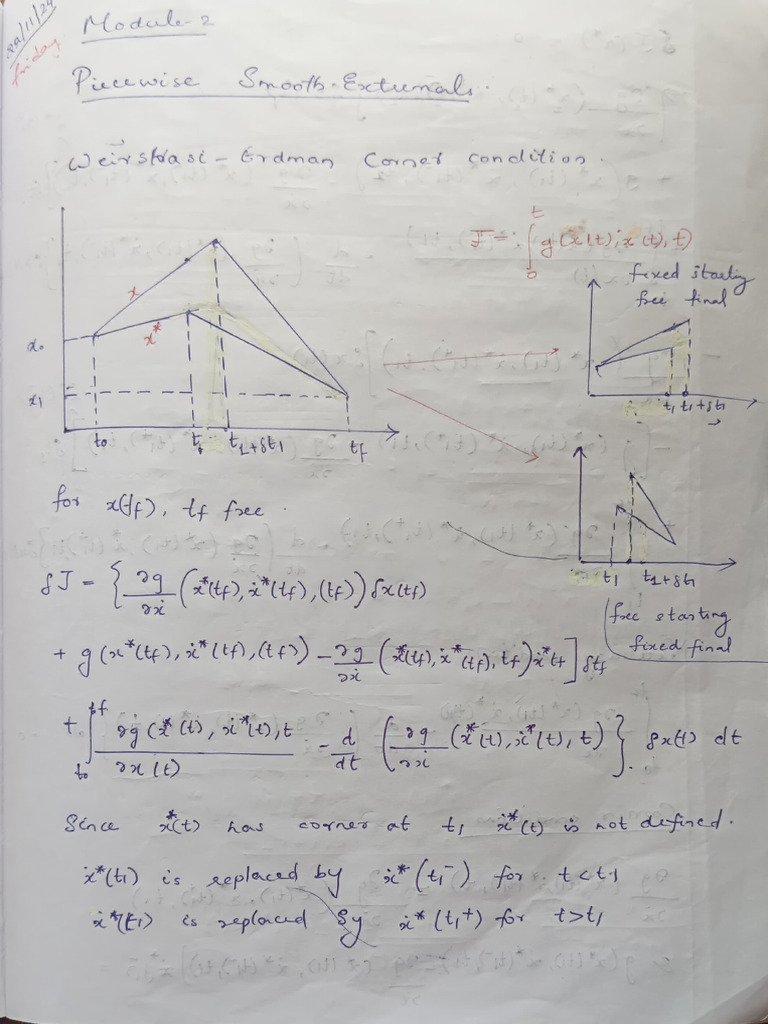 22/11/24
Friday
Module-2
Piecewise Smooth Extremals.
Weirstrasi - Erdman Corner condition.
J = ∫₀ᵗ g(x(t), ẋ(t), t)
fixed starting
free final
x
x*
x₀
x₁
t₀
t₁
t₁+δt₁
t_f
t₁ t₁+δt₁
t₁
t₁+δt₁
free starting
fixed final
for x(t_f), t_f free.
δJ = { ∂g/∂ẋ (x*(t_f), ẋ*(t_f), (t_f)) δx(t_f)
+ g(x*(t_f), ẋ*(t_f), (t_f)) - ∂g/∂ẋ (x*(t_f), ẋ*(t_f), t_f) ẋ*t_f ] δt_f
+ ∫_{t₀}^{t_f} ∂g(x*(t), ẋ*(t), t / ∂x(t) - d/dt ( ∂g/∂ẋ (x*(t), ẋ*(t), t) }. δx(t) dt
Since x*(t) has corner at t₁ ẋ*(t) is not defined.
ẋ*(t₁) is replaced by ẋ*(t₁⁻) for t<t₁
ẋ*(t₁) is replaced by ẋ*(t₁⁺) for t>t₁